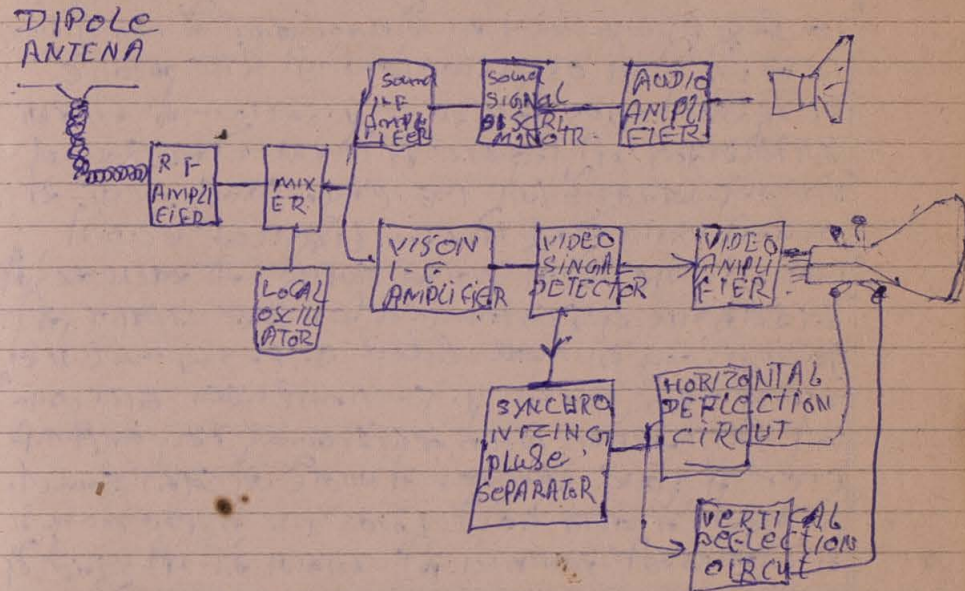 DIPOLE
ANTENA
R F
AMPLI
FIER
MIX
ER
LOCAL
OSCILL
ATOR
Sound
I-F
AMPLI
FIER
SIGNAL
DISCRI
MINOTR
AUDIO
AMPLI
FIER
VISON
I-F
AMPLIFIER
VIDEO
SINGA
DETECTOR
VIDEO
AMPLI
FIER
SYNCHRO
NIZING
pluse
SEPARATOR
HORIZONTAL
DEFLECTION
CIRCUT
VERTICAL
DEFLECTION
CIRCUT